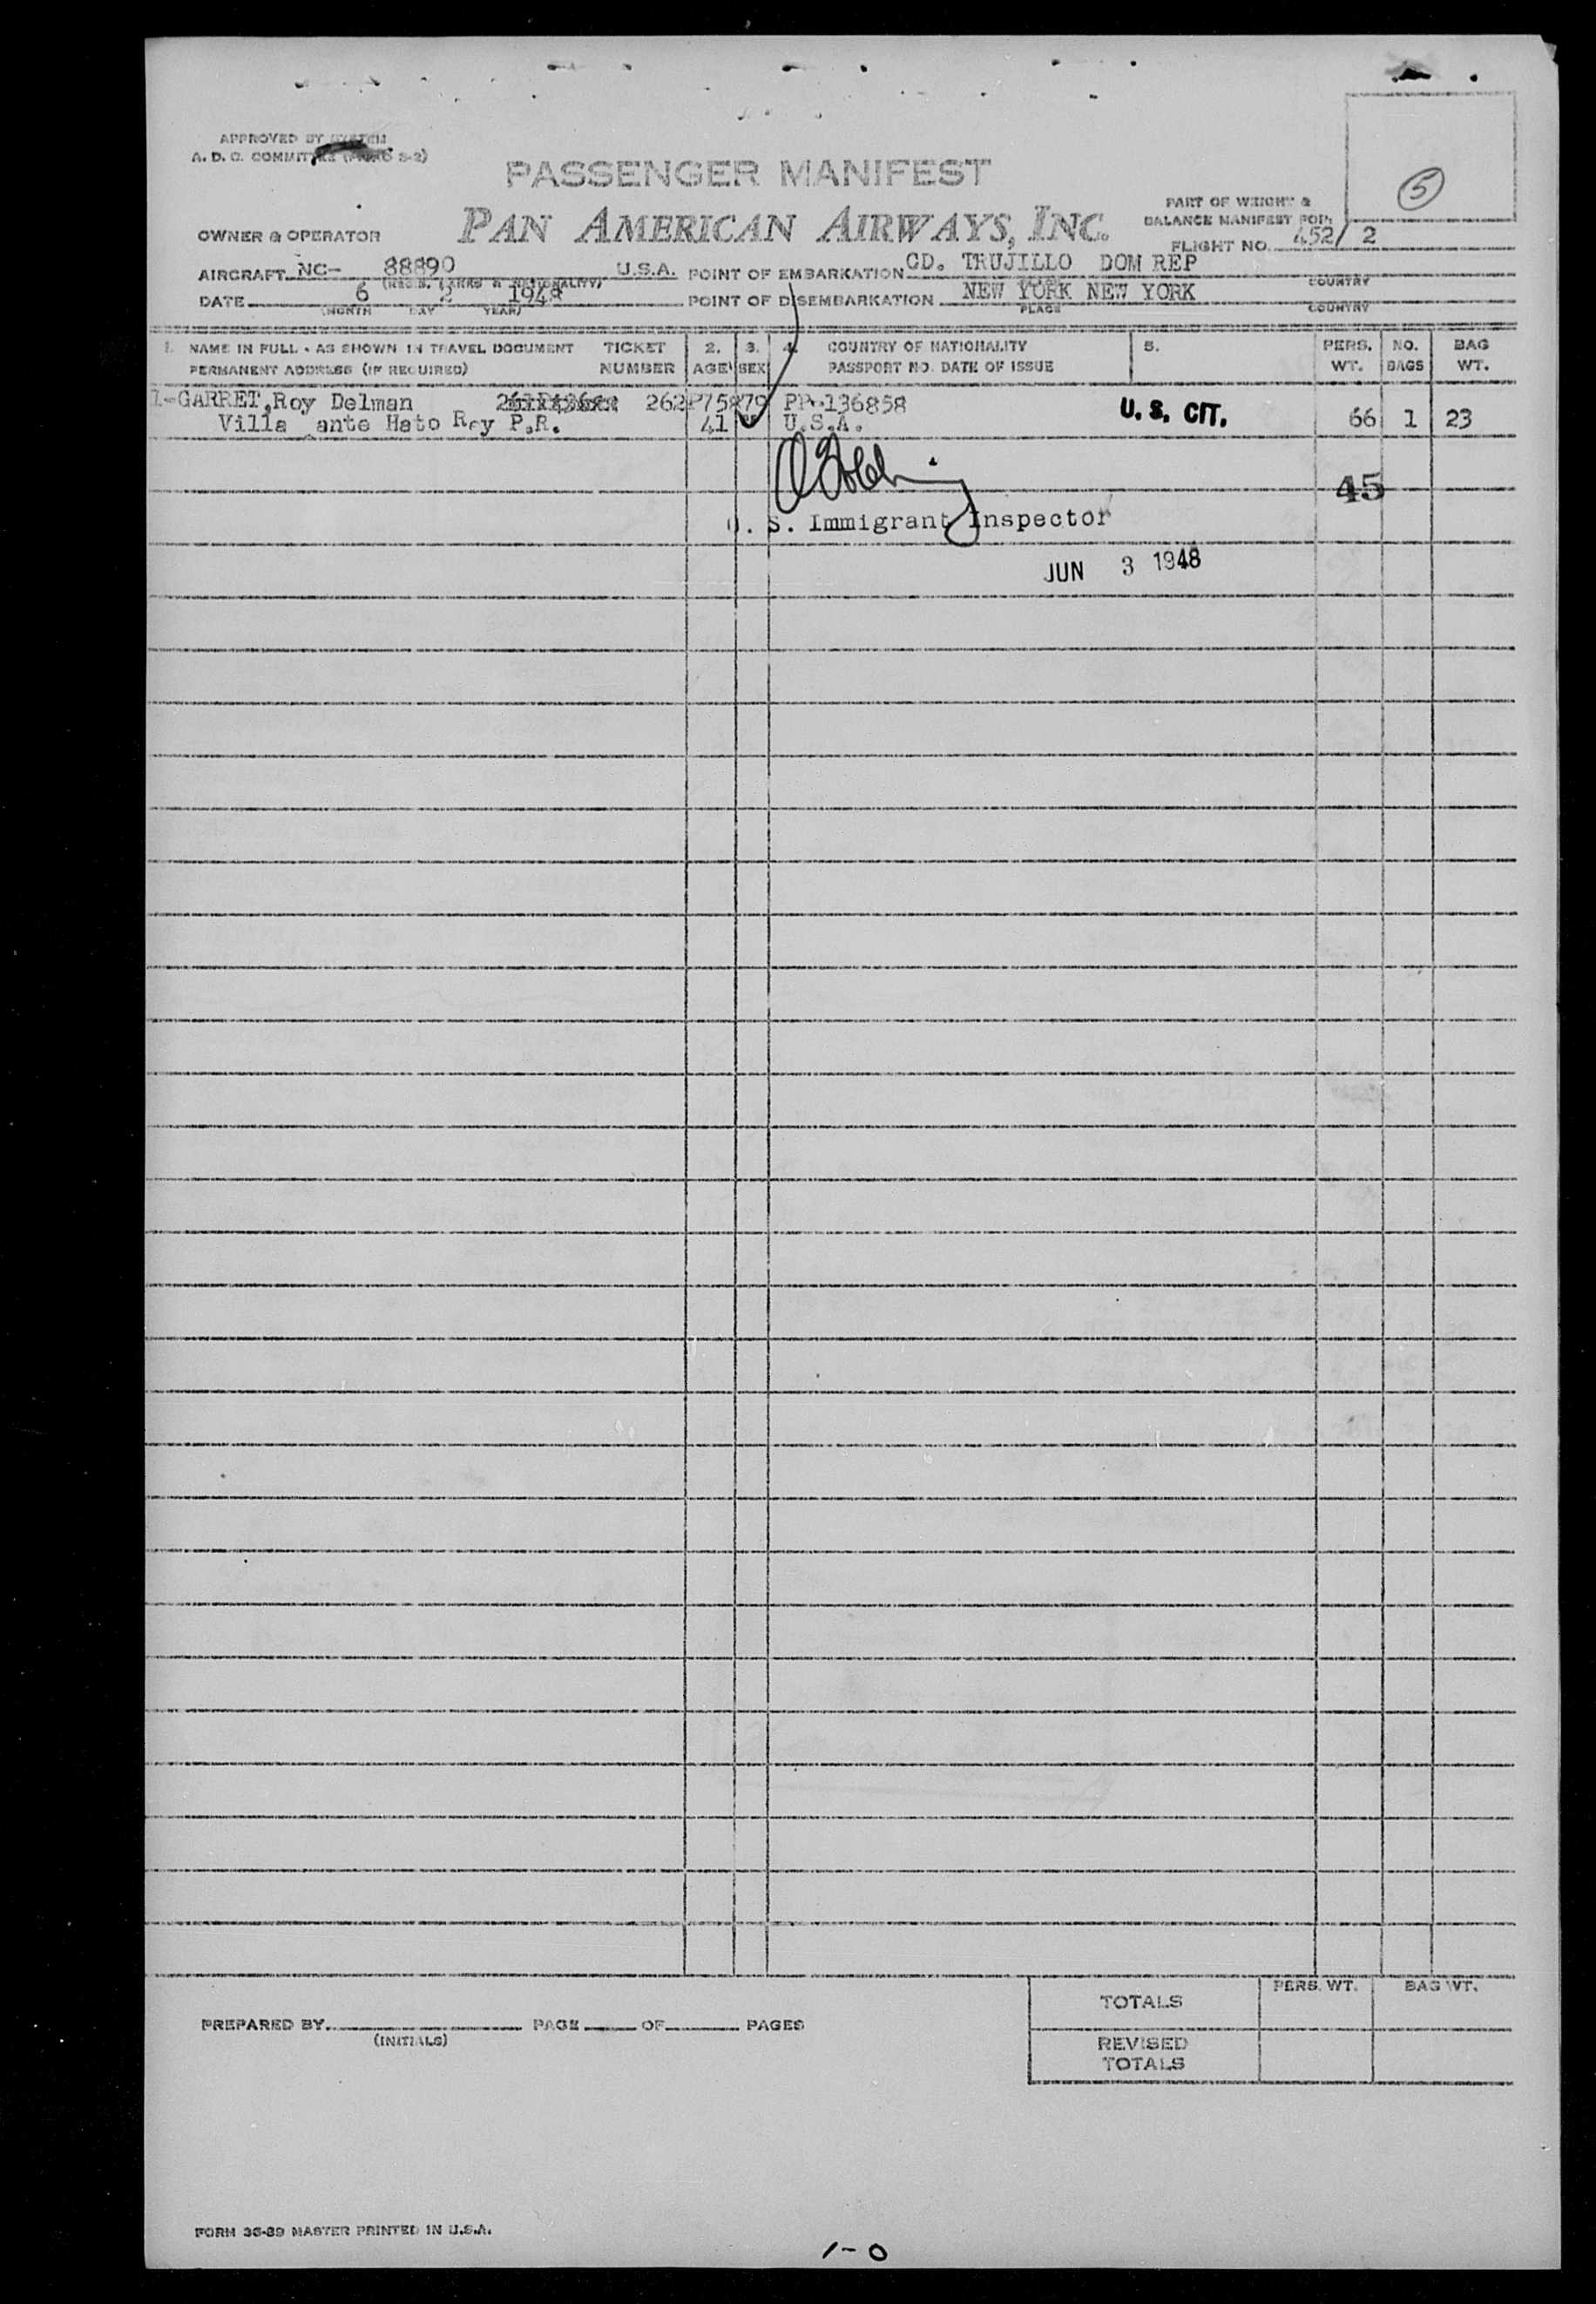 APPROVED BY SYSTEM
A. D. C. COMMITTEE S-2)
PASSENGER MANIFEST
5
PART OF WEIGHT &
BALANCE MANIFEST FOR
OWNER & OPERATOR PAN AMERICAN AIRWAYS, INC.
FLIGHT NO. 452/ 2
AIRCRAFT NC- 88890 U.S.A. POINT OF EMBARKATION CD. TRUJILLO DOM REP
(REGIS. MARKS & NATIONALITY) COUNTRY
DATE 6 2 1948 POINT OF DISEMBARKATION NEW YORK NEW YORK
(MONTH DAY YEAR) PLACE COUNTRY
1. NAME IN FULL - AS SHOWN IN TRAVEL DOCUMENT TICKET 2. 3. 4. COUNTRY OF NATIONALITY 5. PERS. NO. BAG
PERMANENT ADDRESS (IF REQUIRED) NUMBER AGE SEX PASSPORT NO. DATE OF ISSUE WT. BAGS WT.
1-GARRET,Roy Delman 262P75879 PP-136858
Villa ante Hato Rey P.R. 41 U.S.A. U. S. CIT. 66 1 23
45
U. S. Immigrant Inspector
JUN 3 1948
TOTALS PERS. WT. BAG WT.
PREPARED BY PAGE OF PAGES
(INITIALS)
REVISED
TOTALS
FORM 36-89 MASTER PRINTED IN U.S.A.
1-0